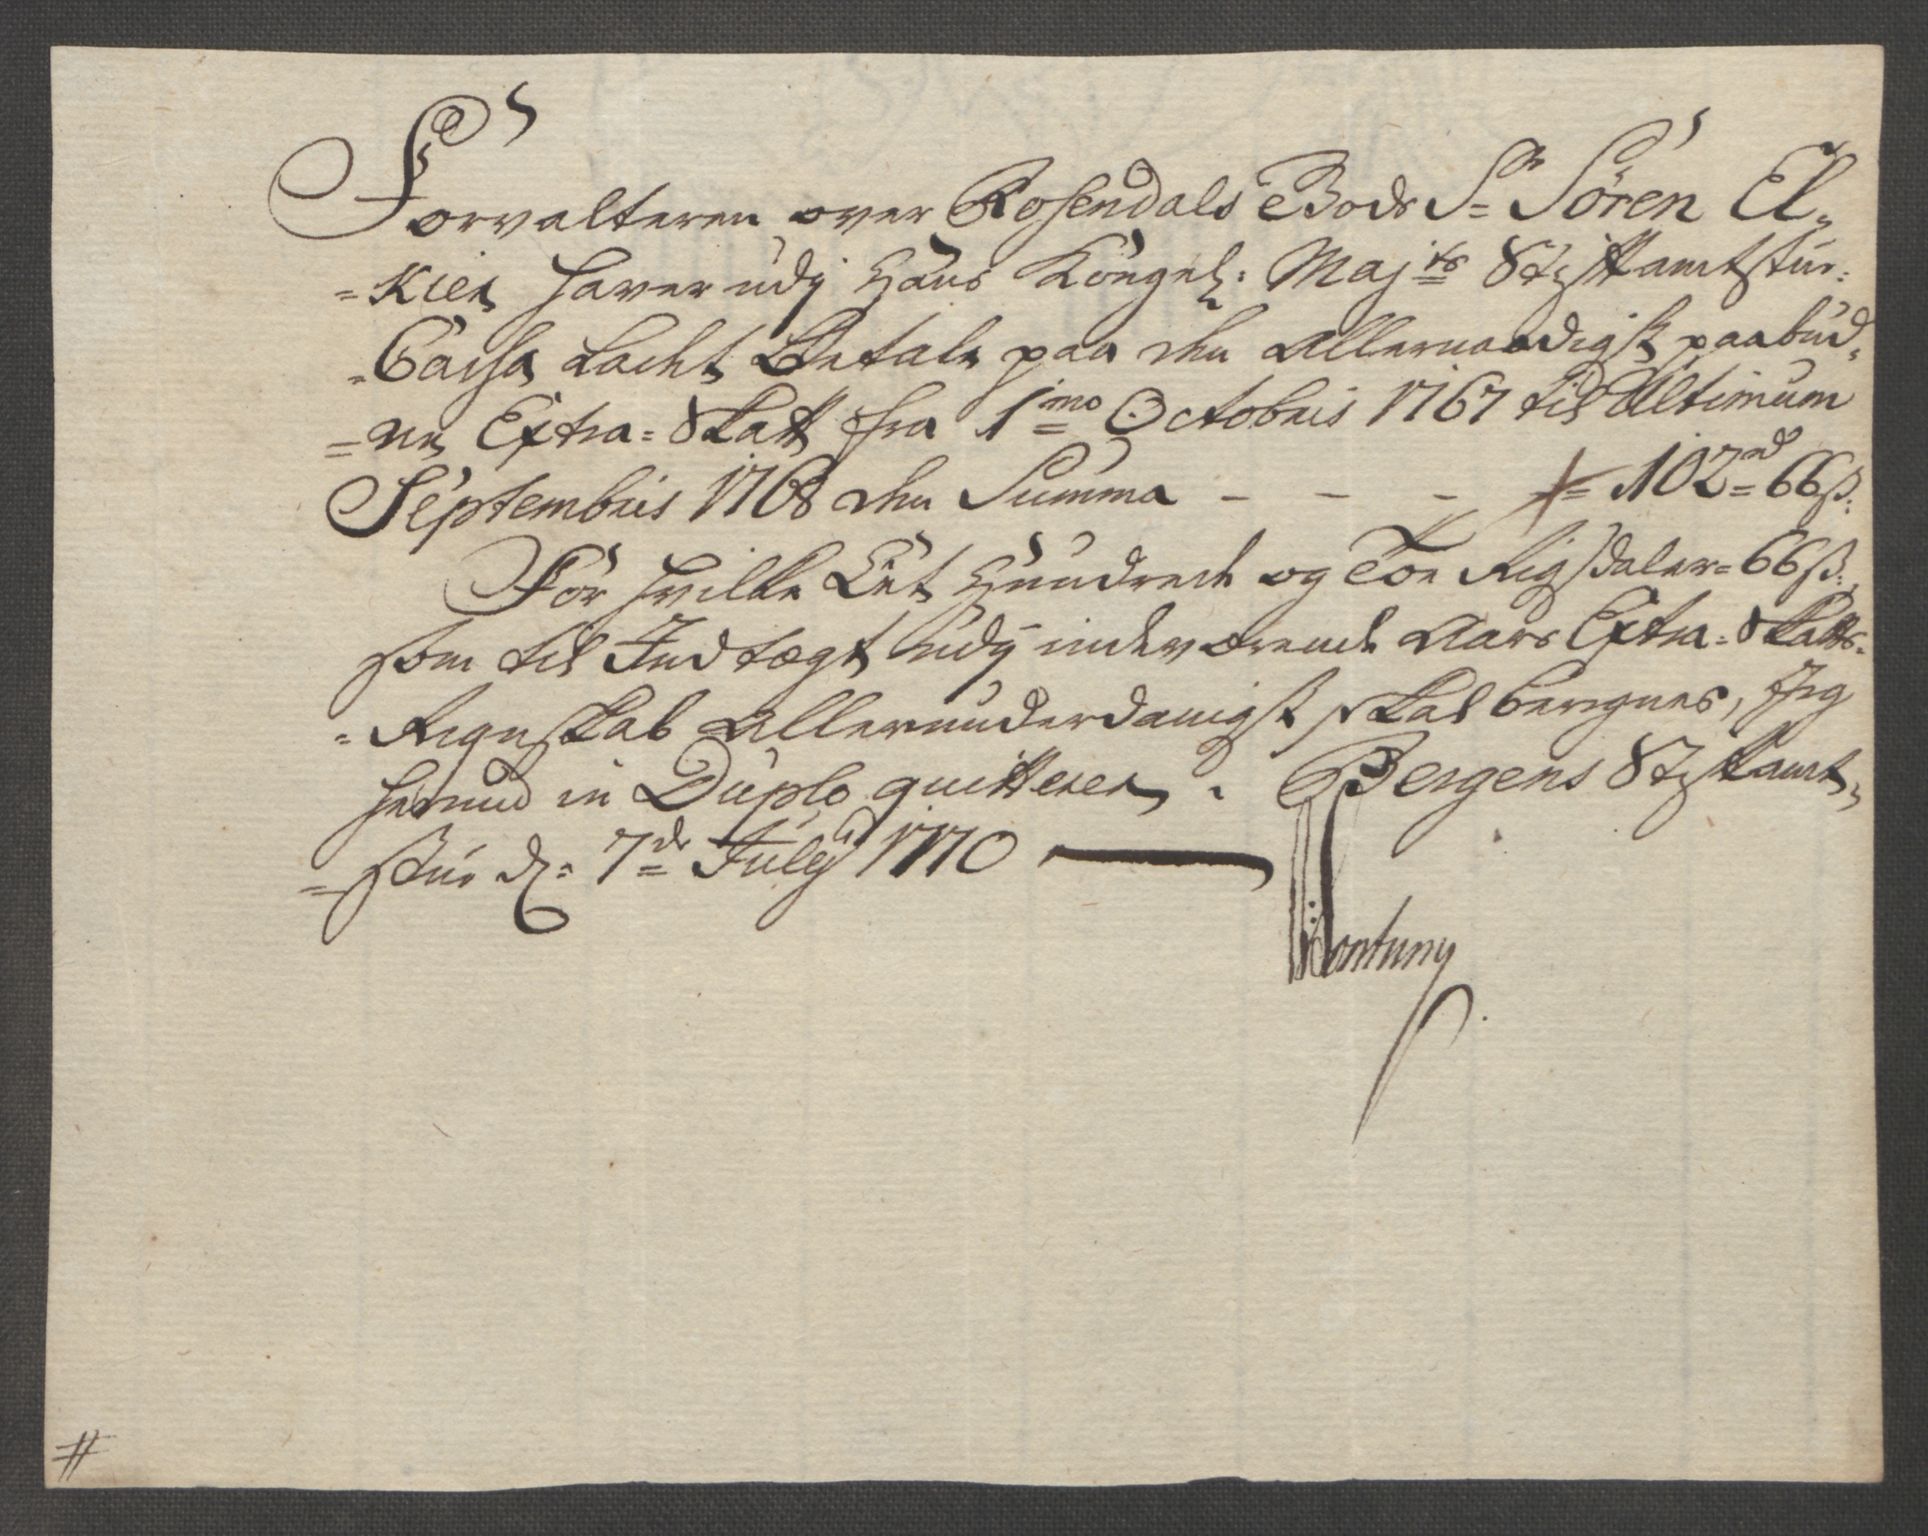 Forvalteren over Rosendals Gods Sr= Sören El=
=kier haver udj Hans Kongel: Majts Stiftamtstue=
=Cassa ladet Betale paa den Allernaadigst paabud=
=ne Extra=Skatt fra 1mo= Octobris 1767 til Ultimum
Septembris 1768 den Summa - - - = 102rd= 66ß:
For hvilke Eet Hundrede og Toe Rigsdaler= 66ß:
som til Indtægt udj indeværende Aars Extra=Skatts=
=Regnskab Allerunderdanigst skal beregnes, Jeg
herved in Duplo quitterer. Bergens Stiftamt=
=stue d: 7de= Julij 1770
Hartung
#